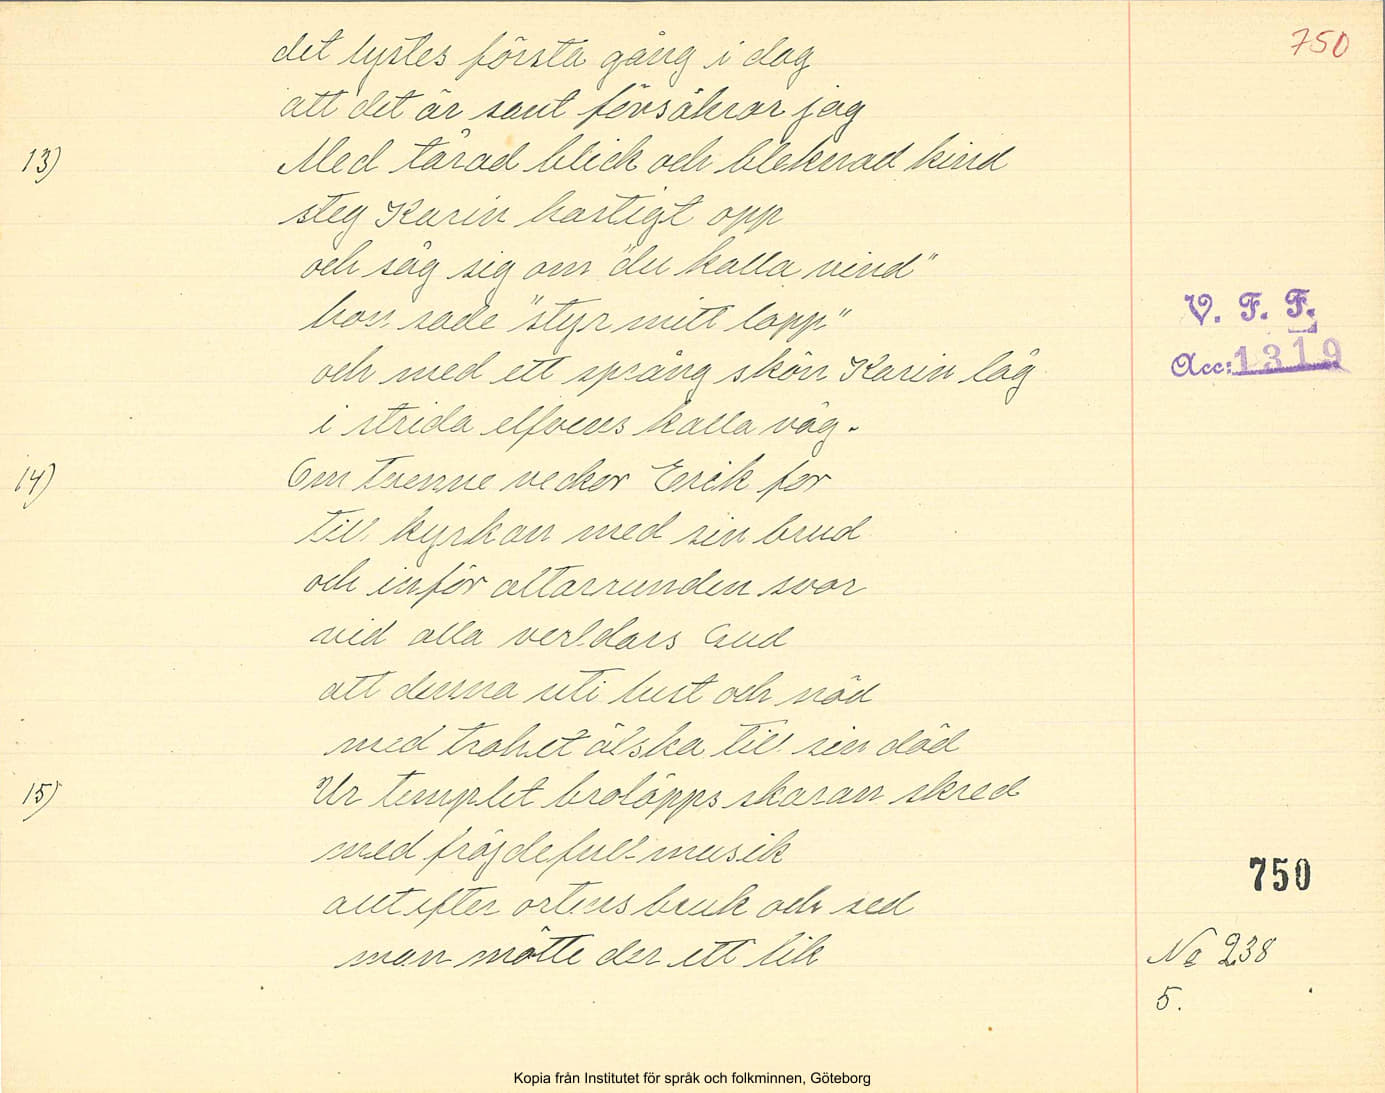 750
det lystes första gång i dag
att det är sant försäkrar jag
13) Med tårad blick och bleknad kind
steg Karin hastigt opp
och såg sig om "du kalla vind"
hon sade "styr mitt lopp"
och med ett språng skön Karin låg
i strida elfvens kalla våg.
14) Om tvenne veckor Erik for
till kyrkan med sin brud
och inför altarrunden svor
vid alla verldars Gud
att denna uti lust och nöd
med trohet älska till sin död
15) Ur templet brolöpps skaran skred
med fröjdefull musik
allt efter ortens bruk och sed
man mötte der ett lik
V. F. F.
Acc: 1319
750
No 238
5.
Kopia från Institutet för språk och folkminnen, Göteborg